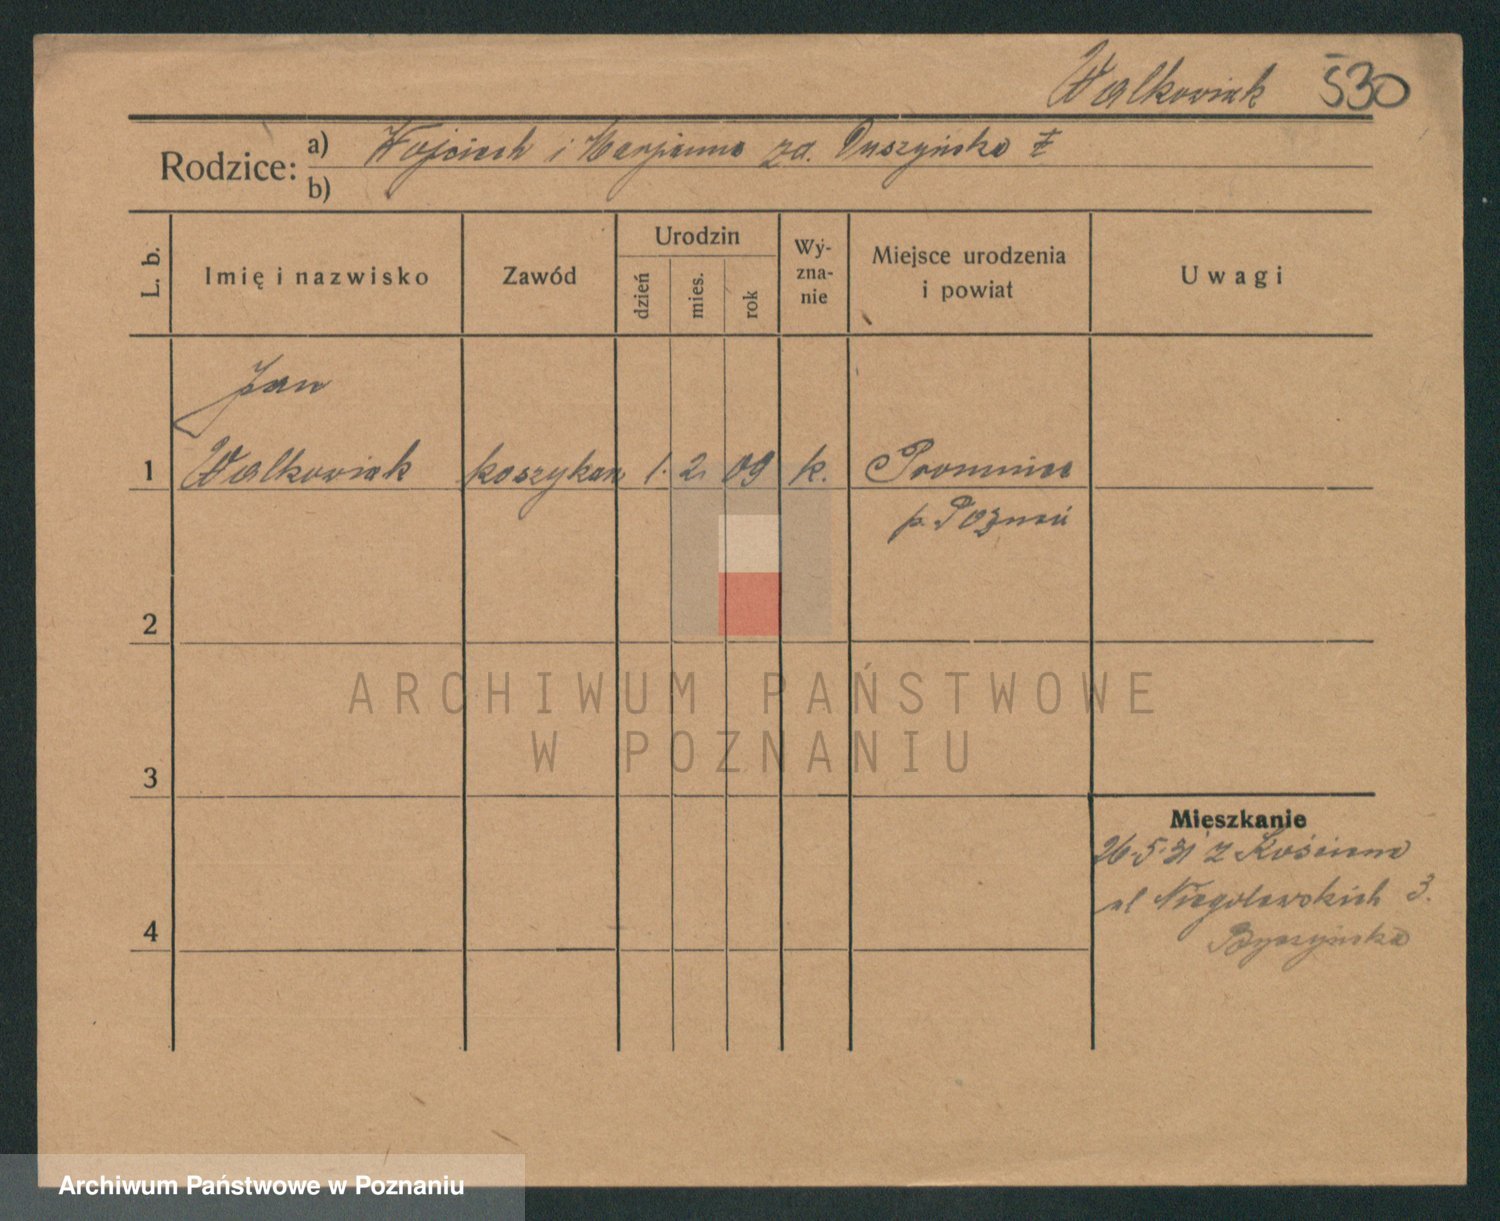 Walkowiak 530
Rodzice: a) Wojciech i Marjanna zd. Duszyńska
b)
L. b. Imię i nazwisko Zawód Urodzin dzień mies. rok Wy-zna-nie Miejsce urodzenia i powiat Uwagi
Jan
1 Walkowiak koszykarz 1. 2. 09 k. Promnice
p. Poznań
2
ARCHIWUM PAŃSTWOWE
W POZNANIU
3
Mieszkanie
26.5.31 z Kościana
ul Niegolewskich 3.
4
Archiwum Państwowe w Poznaniu